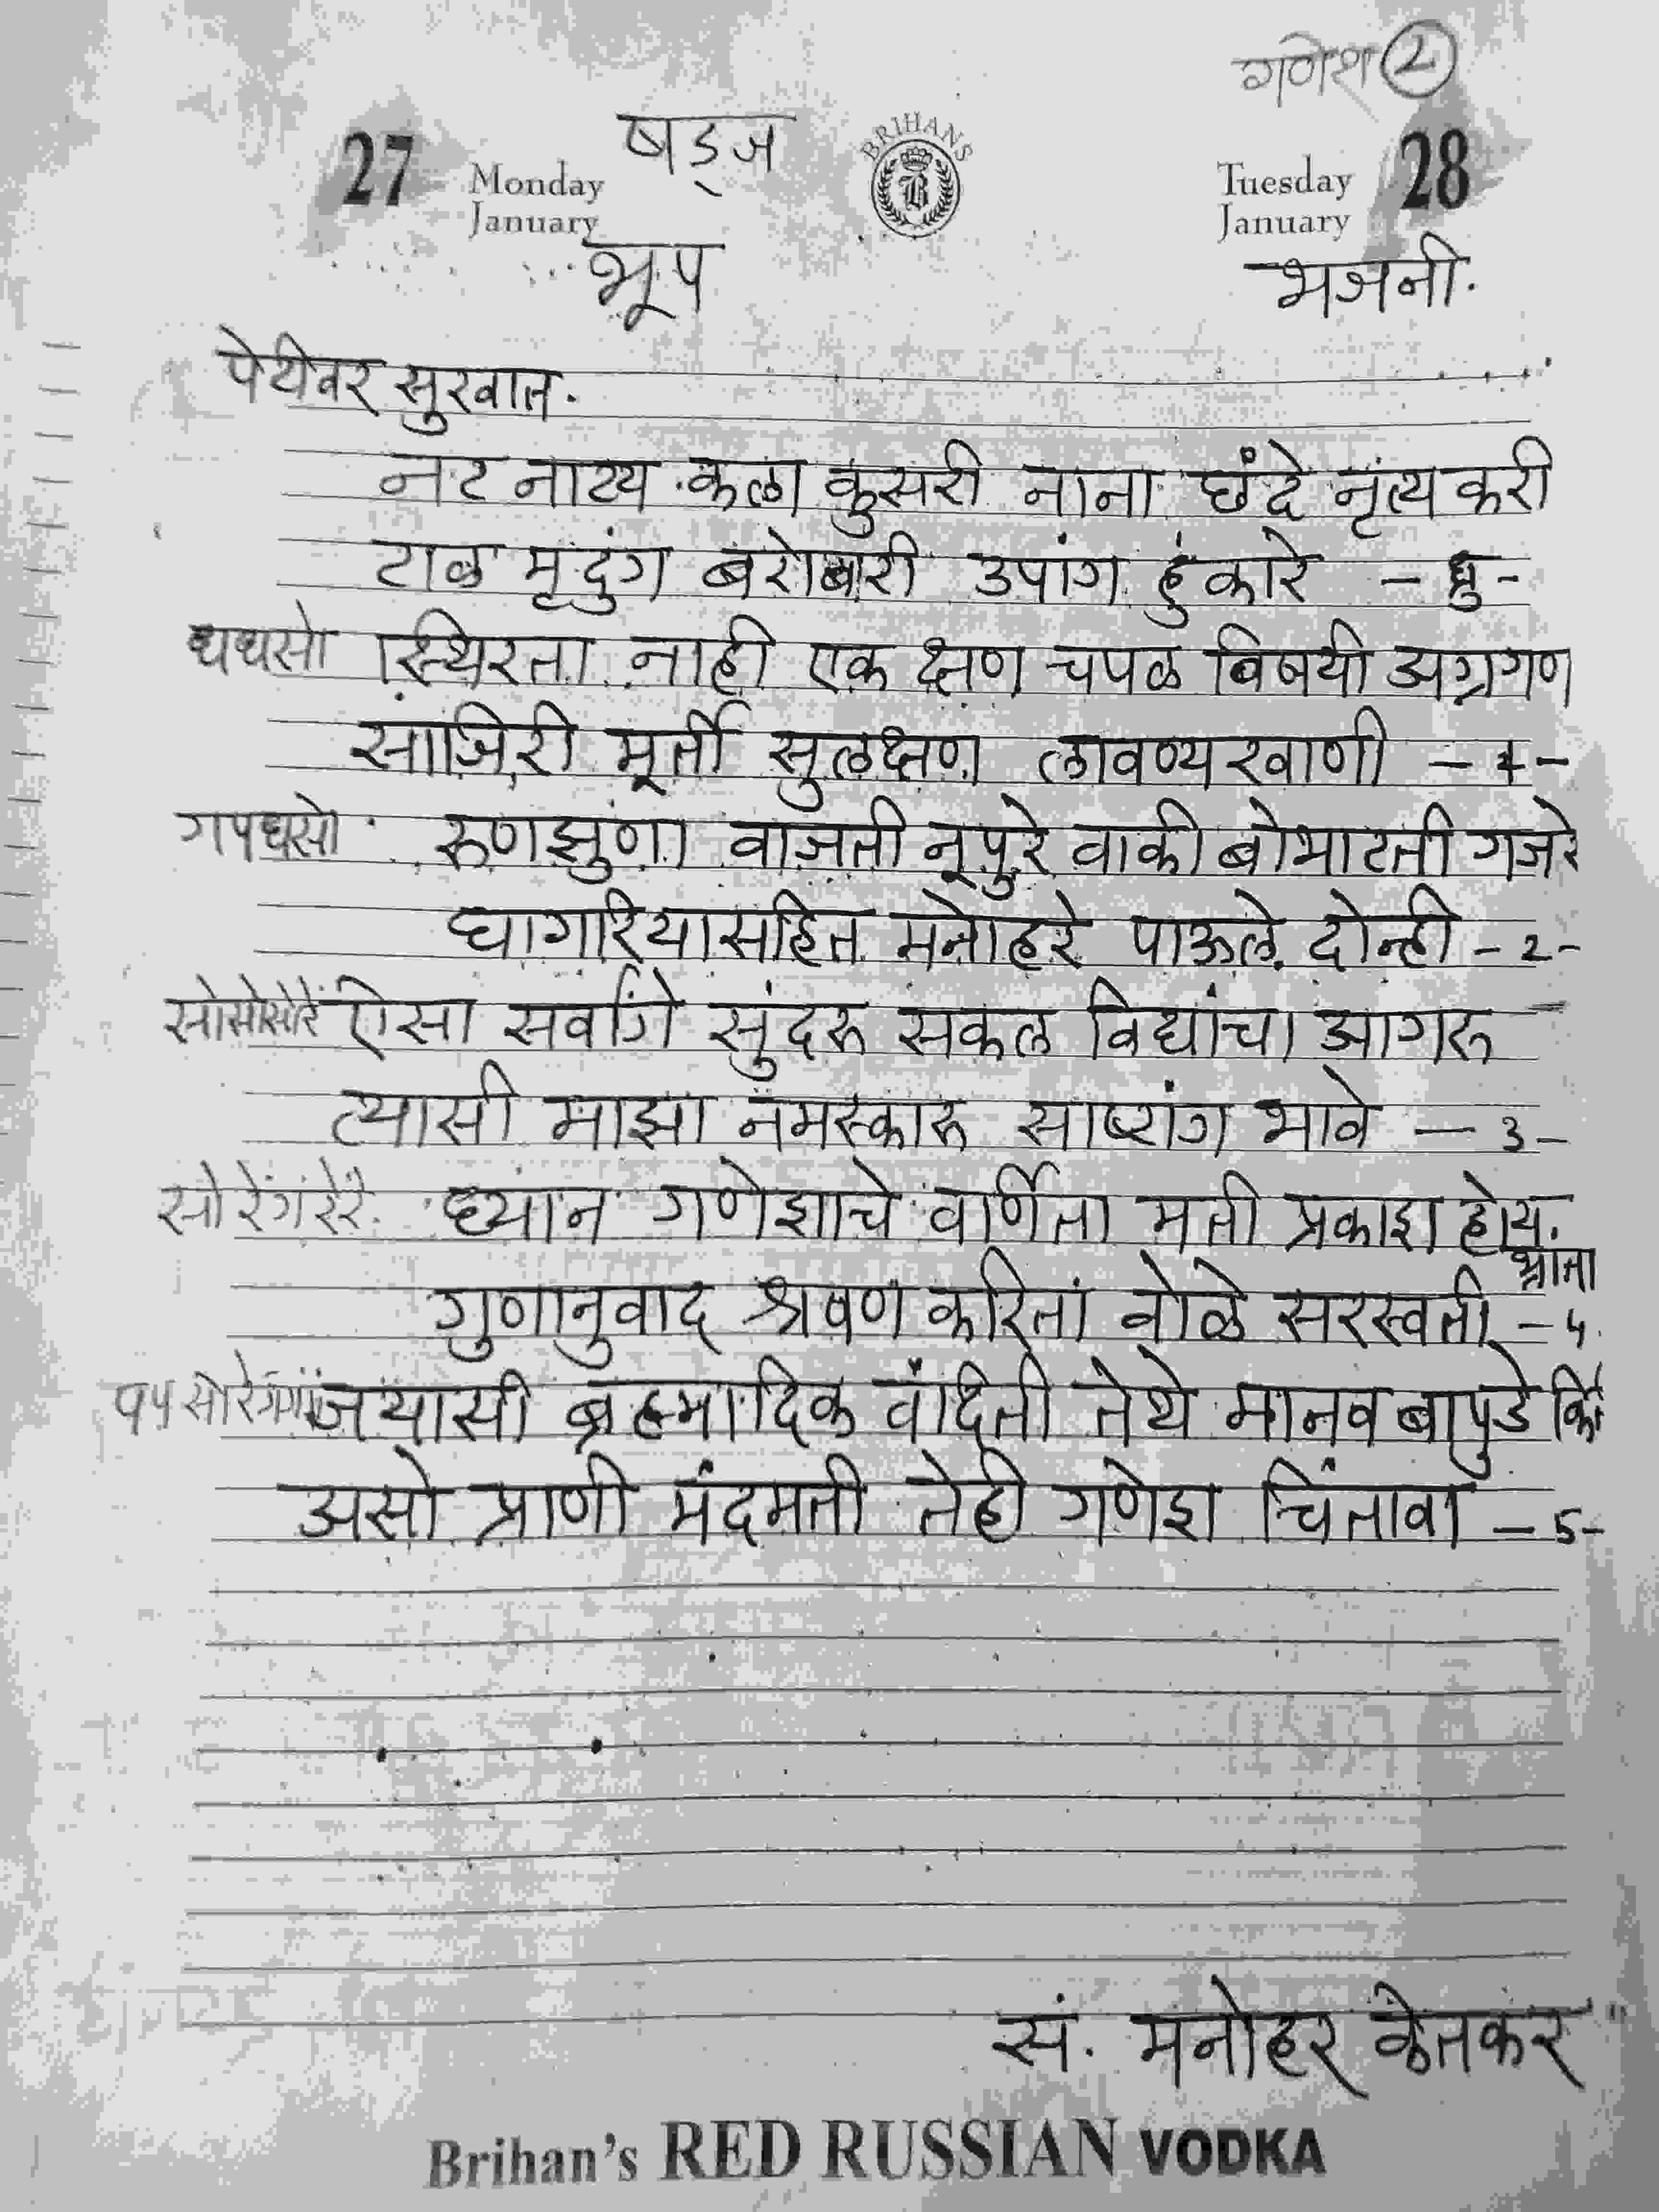 गणेश 2
27 Monday January षड्ज BRIHANS B Tuesday January 28
भूप भजनी.
पेटीवर सुरवात.
नट नाट्य कला कुसरी नाना छंदे नृत्य करी
टाळ मृदुंग बरोबरी उपांग हुंकारे - धृ -
धधसां स्थिरता नाही एक क्षण चपळ विषयी अग्रगण
साजिरी मूर्ती सुलक्षण लावण्यखाणी - १ -
गपधसां रुणझुणा वाजती नूपुरे वाकी बोभाटती गजरे
घागरियासहित मनोहरे पाऊले दोन्ही - २ -
सांसांसांरें ऐसा सर्वांगे सुंदरु सकल विद्यांचा आगरु
त्यासी माझा नमस्कारु साष्टांग भावे - ३ -
सां रेंगंरेंरें ध्यान गणेशाचे वर्णिता मती प्रकाश होय
भ्राता
गुणानुवाद श्रवण करितां वोळे सरस्वती - ४
पप सांरेंगंगं जयासी ब्रह्मादिक वंदिती तेथे मानव बापुडे किती
असो प्राणी मंदमती तेही गणेश चिंतावा - 5 -
सं. मनोहर केतकर
Brihan's RED RUSSIAN VODKA